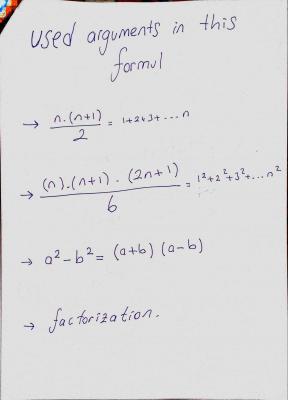 used arguments in this
formul
→ n.(n+1)/2 = 1+2+3+...n
→ (n).(n+1).(2n+1)/6 = 1²+2²+3²+...n²
→ a²-b²= (a+b) (a-b)
→ factorization.